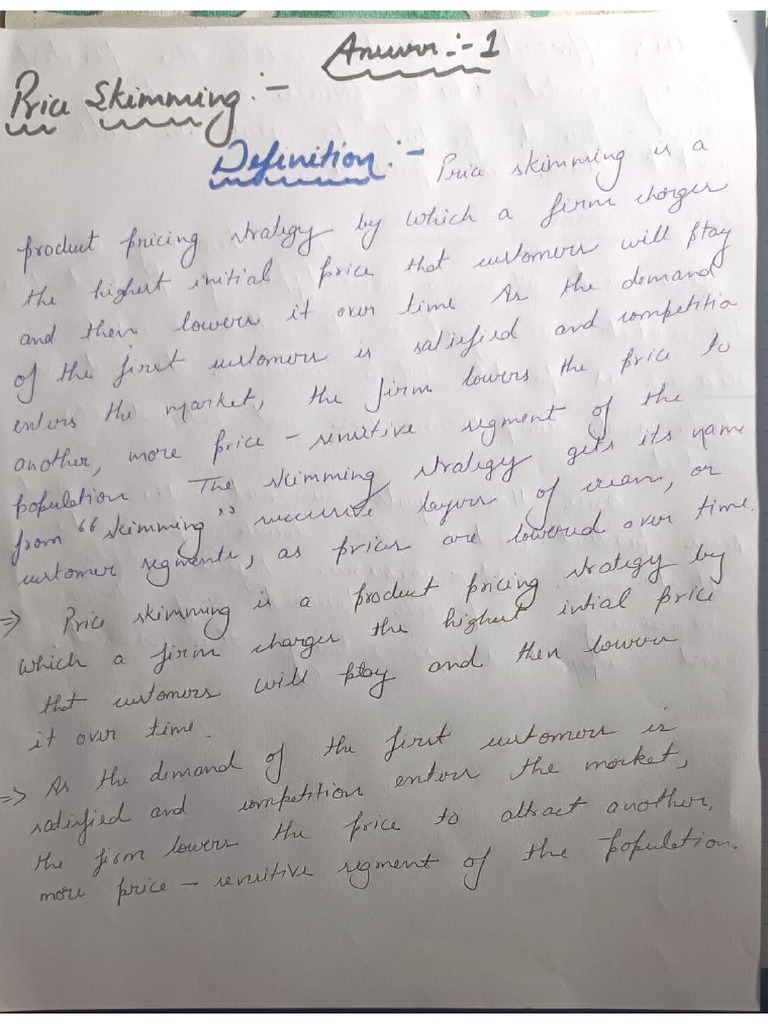 Answer:-1
Price Skimming:-
Definition:- Price skimming is a
product pricing strategy by which a firm charges
the highest initial price that customers will ptay
and then lowers it over time As the demand
of the first customers is satisfied and competitio
enters the market, the firm lowers the price to
another, more price - sensitive segment of the
population. The skimming strategy gets its name
from "skimming" successive layers of cream, or
customer segments, as prices are lowered over time.
=> Price skimming is a product pricing strategy by
which a firm charges the highest intial price
that customers will pay and then lowers
it over time.
=> As the demand of the first customers is
satisfied and competition enters the market,
the firm lowers the price to attract another,
more price - sensitive segment of the population.